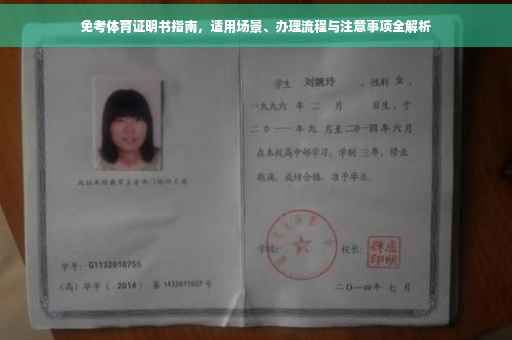 免考体育证明书指南，适用场景、办理流程与注意事项全解析
学生 刘婉玲 ，性别 女 ，
一九九六 年 二 月 日生，于
二〇一一年 九 月至二〇一四年 六 月
在本校高中部学习，学制 三年，修业
期满，成绩合格，准予毕业。
学校： 校长：
学号： G1132010755
（高）毕字（ 2014 ）第 1432011027 号
二〇一四年 七 月